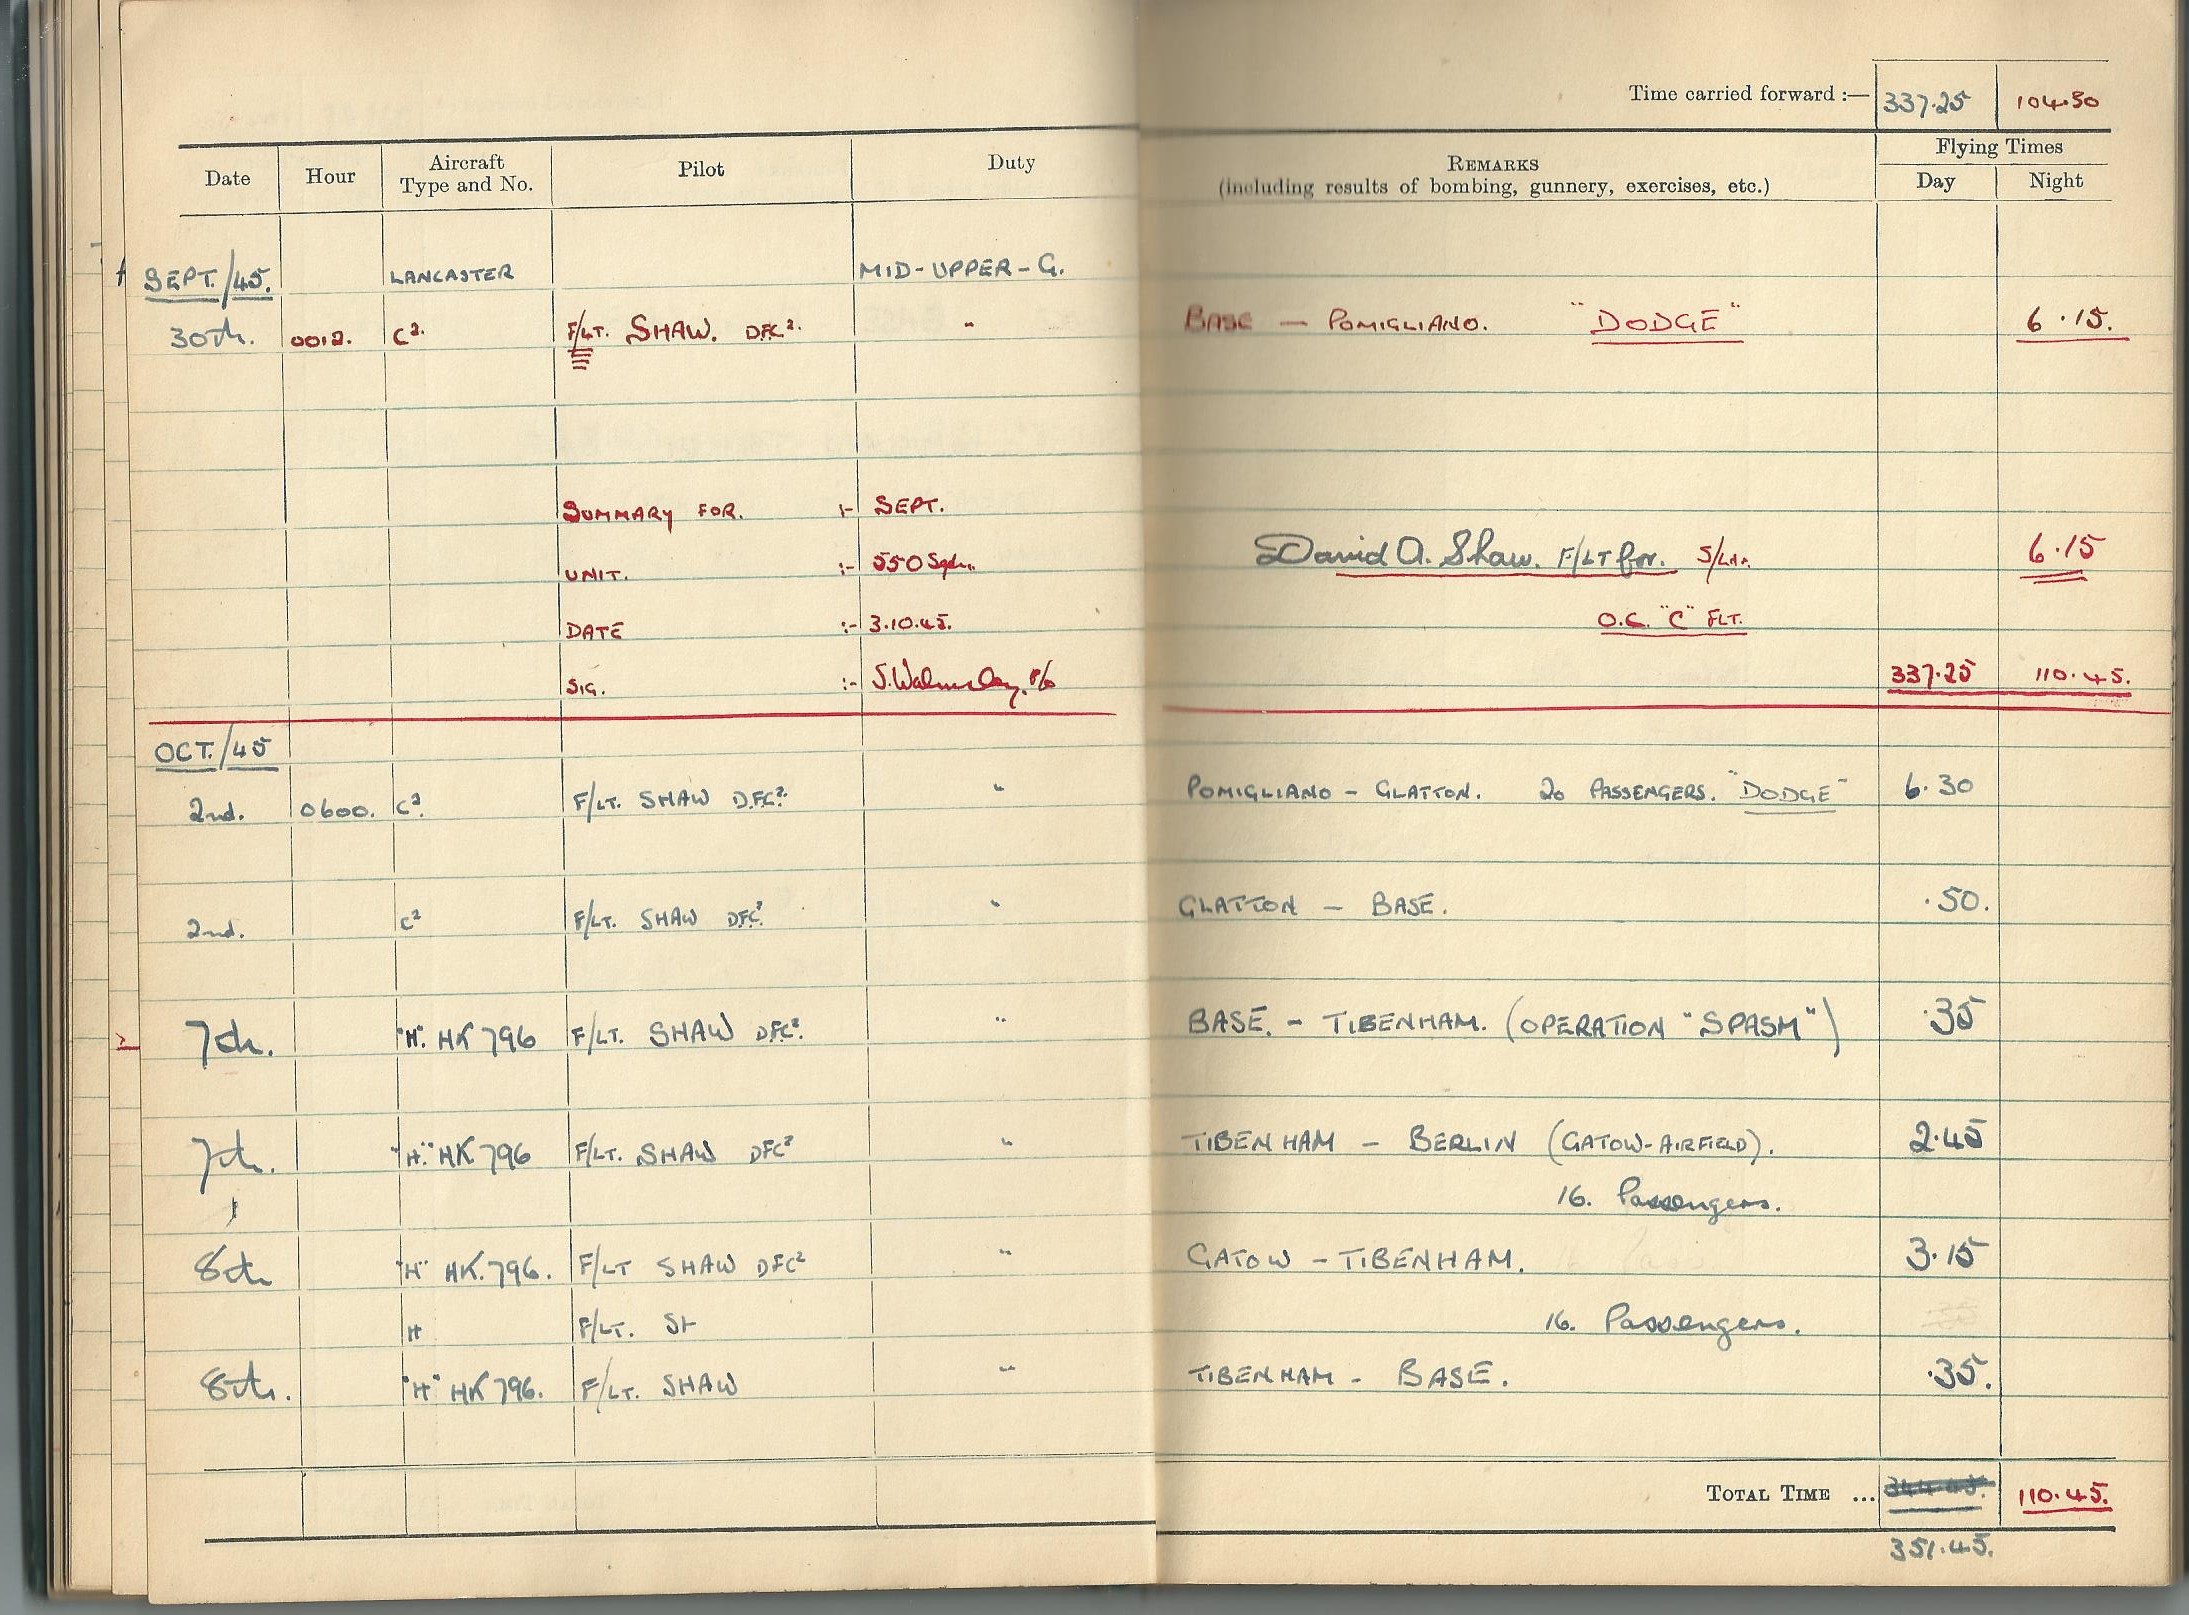 Time carried forward :— 337.25 104.30
Date Hour Aircraft Type and No. Pilot Duty REMARKS (including results of bombing, gunnery, exercises, etc.) Flying Times Day Night
SEPT./45. LANCASTER MID-UPPER-G.
30th. 0012. C². F/LT. SHAW. DFC². " BASE — POMIGLIANO. "DODGE" 6.15.
SUMMARY FOR. :- SEPT.
UNIT. :- 550 Sqdn. David A. Shaw. F/LT for. S/Ldr. 6.15
DATE :- 3.10.45. O.C. "C" FLT.
SIG. :- S. Walmsley. P/o 337.25 110.45.
OCT./45
2nd. 0600. C². F/LT. SHAW DFC². " POMIGLIANO – GLATTON. 20 PASSENGERS. "DODGE" 6.30
2nd. C² F/LT. SHAW DFC². " GLATTON – BASE. .50.
7th. "H". HK 796 F/LT. SHAW DFC². " BASE. – TIBENHAM. (OPERATION "SPASM") .35
7th. "H." HK 796 F/LT. SHAW DFC² " TIBENHAM – BERLIN (GATOW-AIRFIELD). 2.45
16. Passengers.
8th "H" HK.796. F/LT SHAW DFC² " GATOW – TIBENHAM. 3.15
H F/LT. SH 16. Passengers.
8th. "H" HK 796. F/LT. SHAW " TIBENHAM – BASE. .35.
TOTAL TIME ... 344.45. 110.45.
351.45.